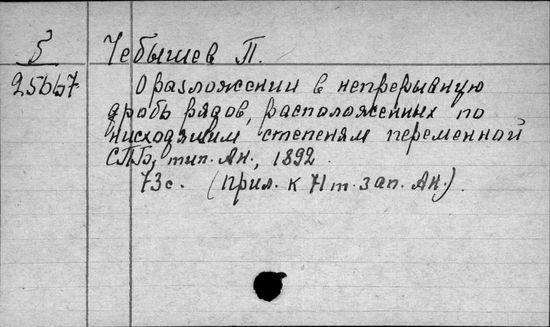 Б
25667
Чебышев П.
О разложении в непрерывную
дробь рядов, расположенных по
нисходящим степеням переменной
СПБ, тип. Ан., 1892.
73 с. (Прил. к 71 т. зап. Ан.)